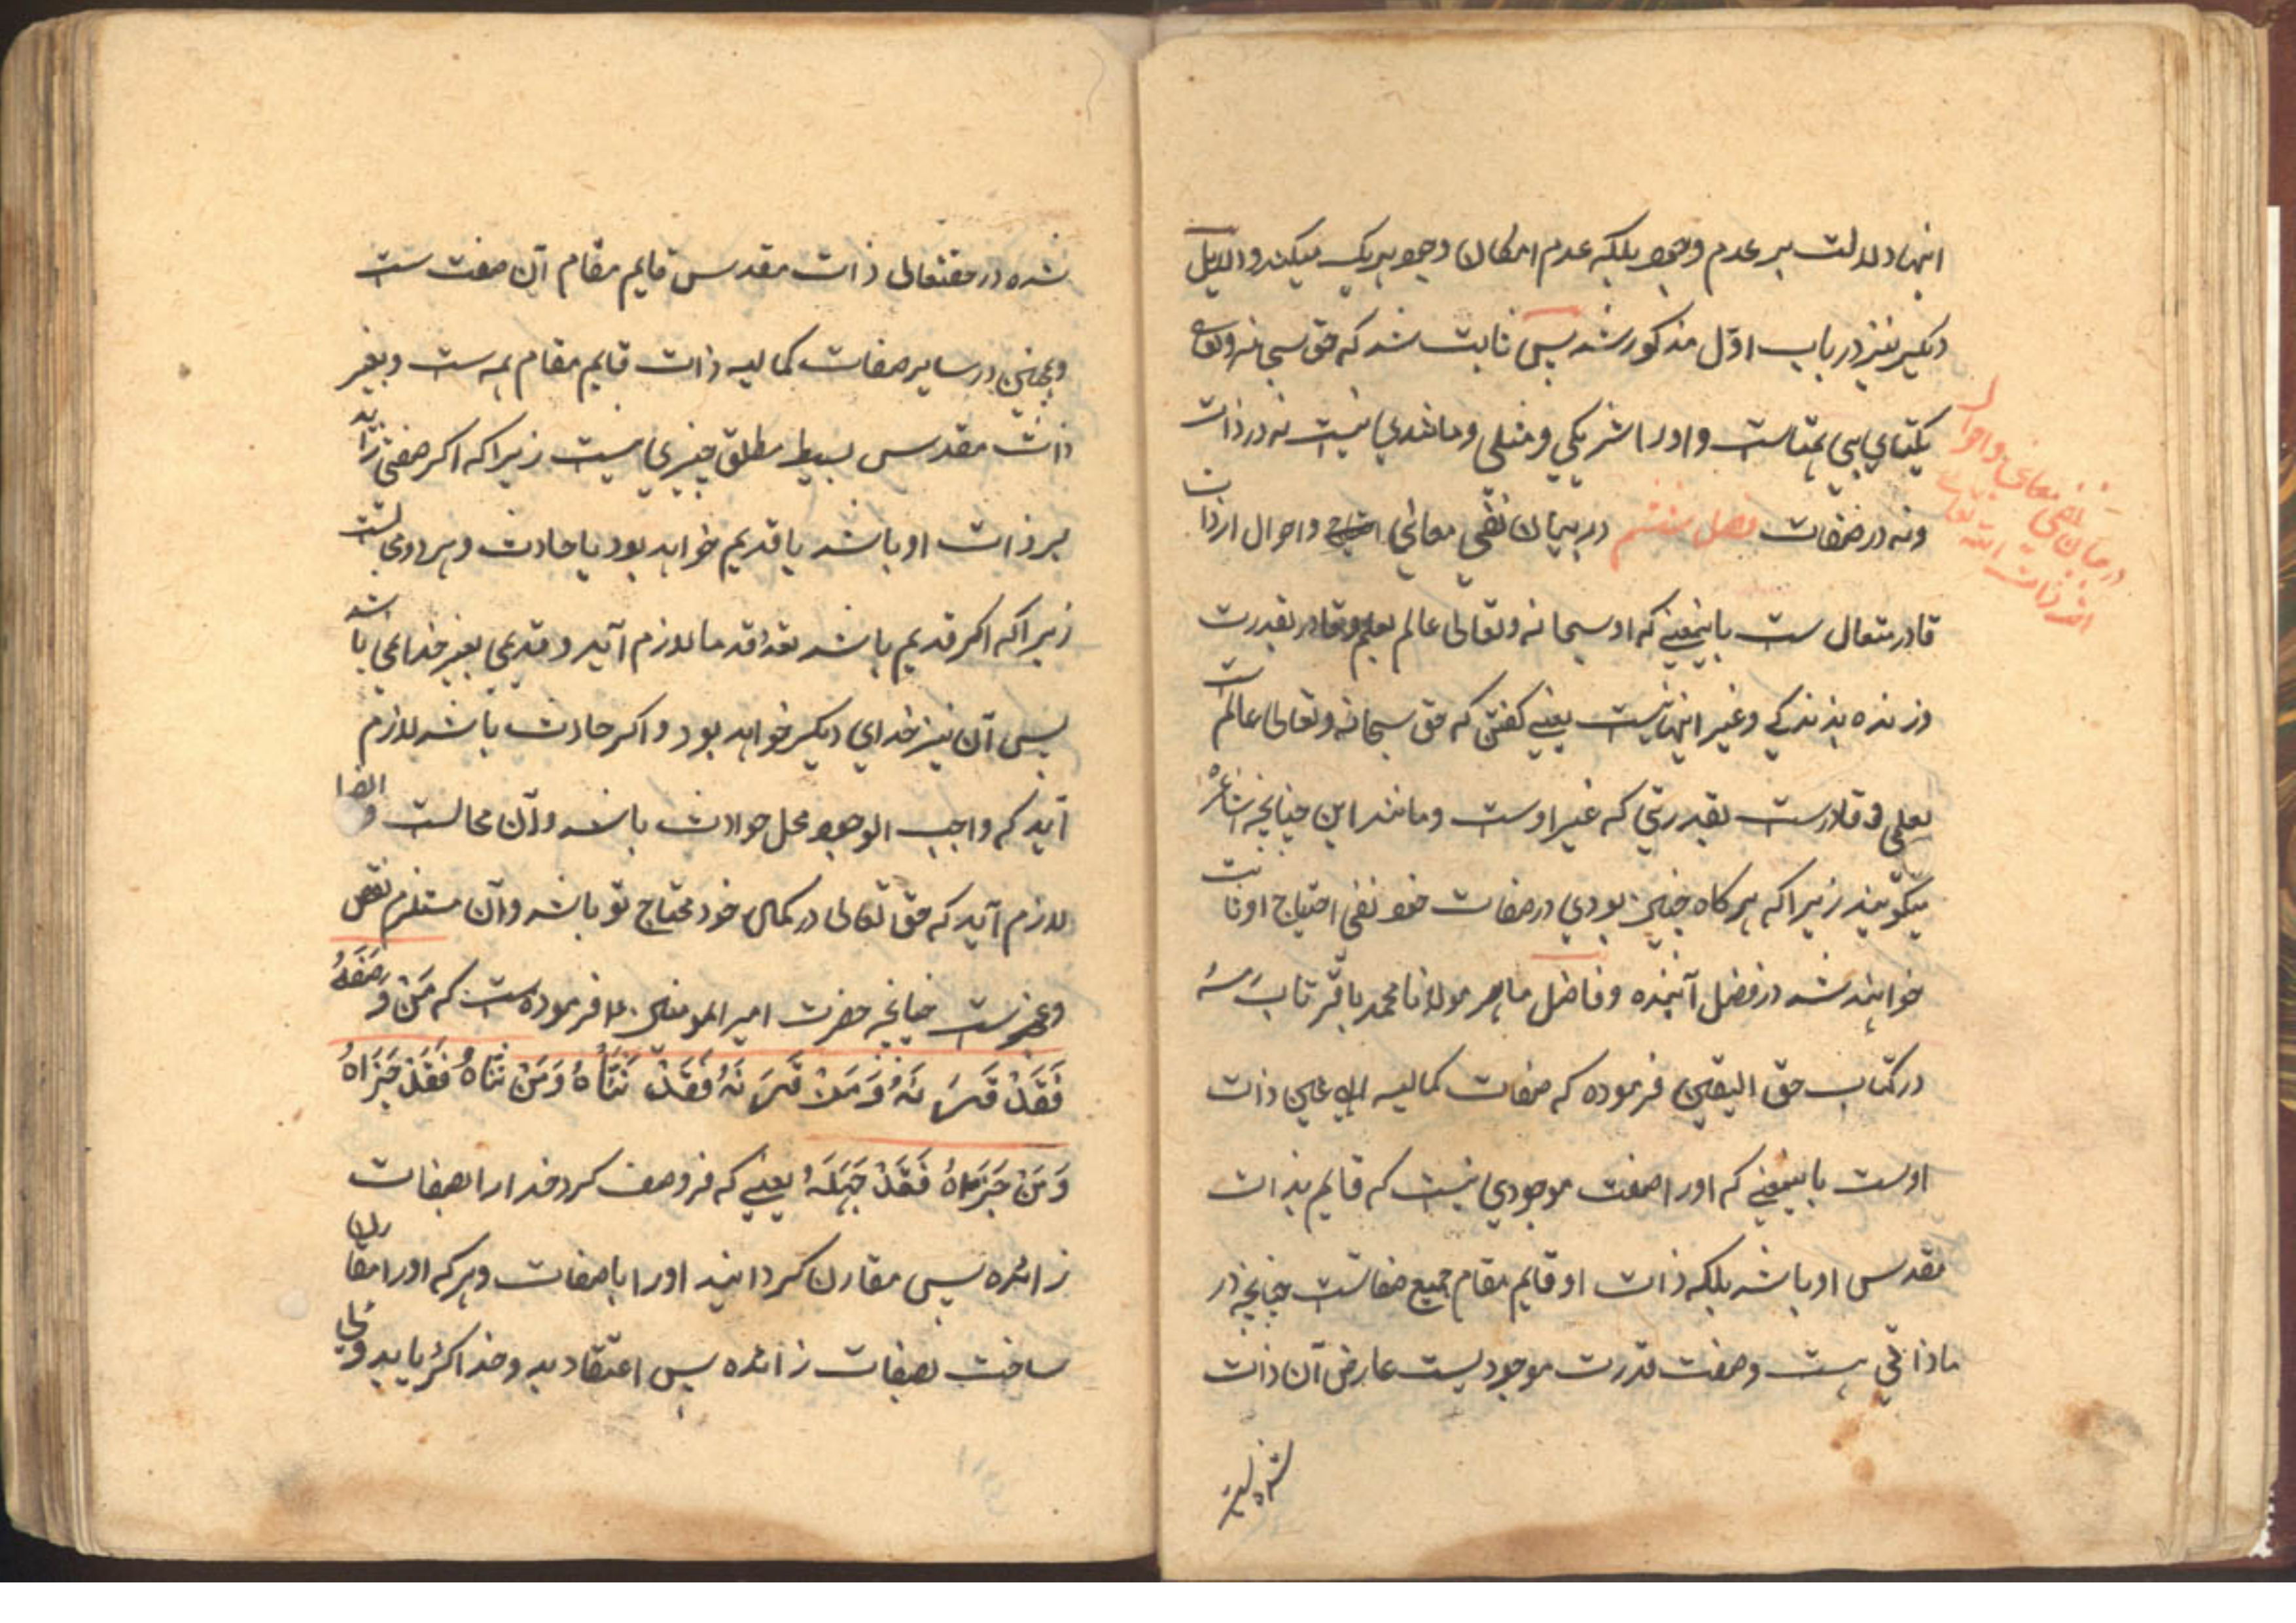 اینها دلالت بر عدم وجود بلکه عدم امکان وجود هر یک میکند و دلایل
دیکیر نیز در باب اوّل مذکور شد پس ثابت شد که حق سبحانه وتعالی
یکتای بی همتاست و او را شریکي و مثلي و مانندي نیست نه در ذات
ونه در صفات فصل ششم در بیان نفي معاني واحوال از ذات
در بیان نفي معاني واحوال
از ذات الله تعالی
قادر متعال ست باینمعنے که او سبحانه وتعالی عالم بعلم وقادر بقدرت
وزنده بزندکے وغیر اینها نیست یعنے کفتن که حق سبحانه وتعالی عالمست
بعلمی وقادرست بقدرتي که غیر اوست ومانند این چنانچه اشاعره
میکویند زیرا که هرکاه چنین بودي در صفات خود نفی احتیاج او ثابت
خواهد شد در فصل آینده و فاضل ماهر مولانا محمد باقر تاب سره
در کتاب حق الیقین فرموده که صفات کمالیه الهی عین ذات
اوست باینمعنے که او را صفت موجودي نیست که قایم بذات
مقدس او باشد بلکه ذات او قایم مقام جمیع صفاتست چنانچه در
ما ذاتي هست وصفت قدرت موجودیست عارض آن ذات
شده در حقتعالی ذات مقدس قایم مقام آن صفت ست
وهمچنین در سایر صفات کمالیه ذات قایم مقام همه ست وبغیر
ذات مقدس بسیط مطلق چیزي نیست زیرا که اکر صفتي زاید
بر ذات او باشد یا قدیم خواهد بود یا حادث وهر دو محالست
زیرا که اکر قدیم باشد تعدد قدما لازم آید و قدیمی بغیر خدا نمی باشد
پس آن نیز خداي دیکر خواهد بود واکر حادث باشد لازم
آید که واجب الوجود محل حوادث باشد وآن محالست وایضا
لازم آید که حق تعالی در کمال خود محتاج تو باشد وآن مستلزم نقص
وعجزست چنانچه حضرت امیر المومنین فرموده ست که مَنْ وَصَفَهُ
فَقَدْ قَرَنَهُ وَمَنْ قَرَنَهُ فَقَدْ ثَنَّاهُ وَمَنْ ثَنَّاهُ فَقَدْ جَزَاهُ
وَمَنْ جَزَاهُ فَقَدْ جَهِلَهُ یعنے که هر وصف کرد خدا را بصفات
زائده پس مقارن کردانید او را با صفات وهرکه او را مقارن
ساخت بصفات زائده پس اعتقاد بدو خدا کرد یا بدوئی